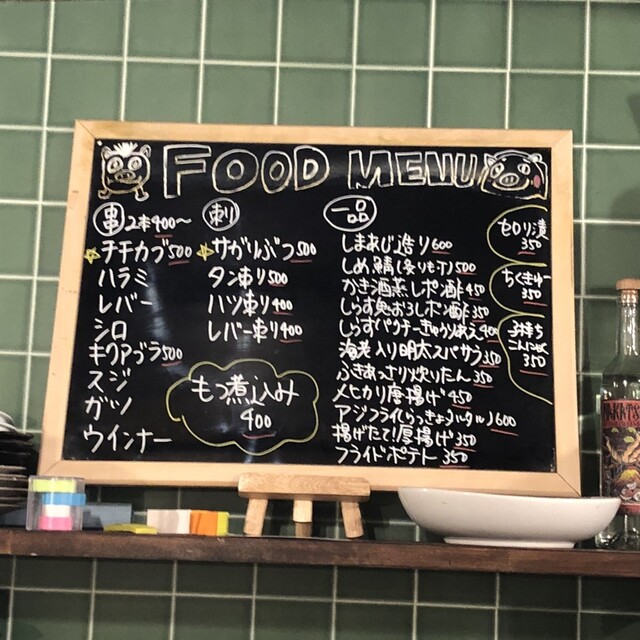 FOOD MENU
串 2本400〜
チチカブ500
ハラミ
レバー
シロ
キクアブラ500
スジ
ガツ
ウインナー
刺り
サガリぶつ500
タン刺り500
ハツ刺り400
レバー刺り400
もつ煮込み
400
一品
しまあじ造り600
しめ鯖(炙りも可)500
かき酒蒸しポン酢450
しらす魚おろしポン酢350
しらすパクチーきゅうりあえ400
海老入り明太スパサラ350
ふきあっさり炊いたん350
メヒカリ唐揚げ450
アジフライ(らっきょタルタル)600
揚げたて!厚揚げ350
フライドポテト350
セロリ漬
350
ちくきゅー
350
子持ち
こんにゃく
350